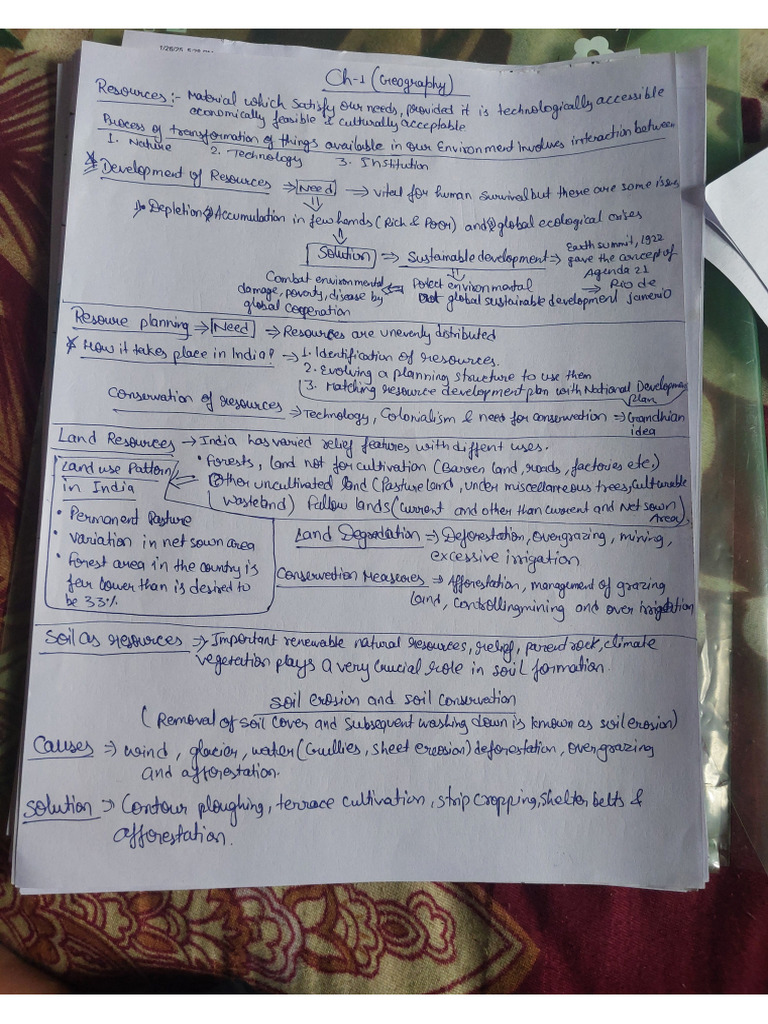 Ch-1 (Geography)
Resources :- Material which satisfy our needs, provided it is technologically accessible
economically feasible & culturally acceptable
Process of transformation of things available in our Environment Involves interaction between
1. Nature 2. Technology 3. Institution
* Development of Resources ⇒ Need → vital for human survival but there are some issues
⇓
1) Depletion 2) Accumulation in few hands (Rich & Poor) and 3) global ecological crises
⇓
Solution ⇒ Sustainable development ⇒ Earth summit, 1922
gave the concept of
Agenda 21
⇒ Rio de
Janerio
⇓
Potect environmental
global sustainable development
⇐ Combat environmental
damage, poverty, disease by
global cooperation
Resoure planning → Need ⇒ Resources are unevenly distributed
* How it takes place in India? ⇒ 1. Identification of resources.
2. Evolving a planning structure to use them
3. Matching resource development plan with National Development
plan
Conservation of resources ⇒ Technology, Colonialism & need for conservation ⇒ Gandhian
idea
Land Resources → India has varied relief features with diffent uses.
• Forests, land not for cultivation (Barren land, roads, factories etc.)
Other uncultivated land (Pasture land, under miscellaneous trees, culturable
wasteland) Fallow lands (current and other than current and Net sown
Area)
Land use Pattern
in India
• Permanent Pasture
• variation in net sown area
• forest area in the country is
far lower than is desired to
be 33%
Land Degradation ⇒ Deforestation, overgrazing, mining,
excessive irrigation
Conservation Measures ⇒ Afforestation, management of grazing
land, controlling mining and over irrigation
Soil as resources ⇒ Important renewable natural resources, relief, parent rock, climate
vegetation plays a very crucial role in soil formation.
Soil erosion and soil conservation
(Removal of soil cover and subsequent washing down is known as soil erosion)
Causes ⇒ wind, glacier, water (Gullies, sheet erosion) deforestation, overgrazing
and afforestation.
Solution ⇒ Contour ploughing, terrace cultivation, strip cropping, shelter belts &
afforestation.